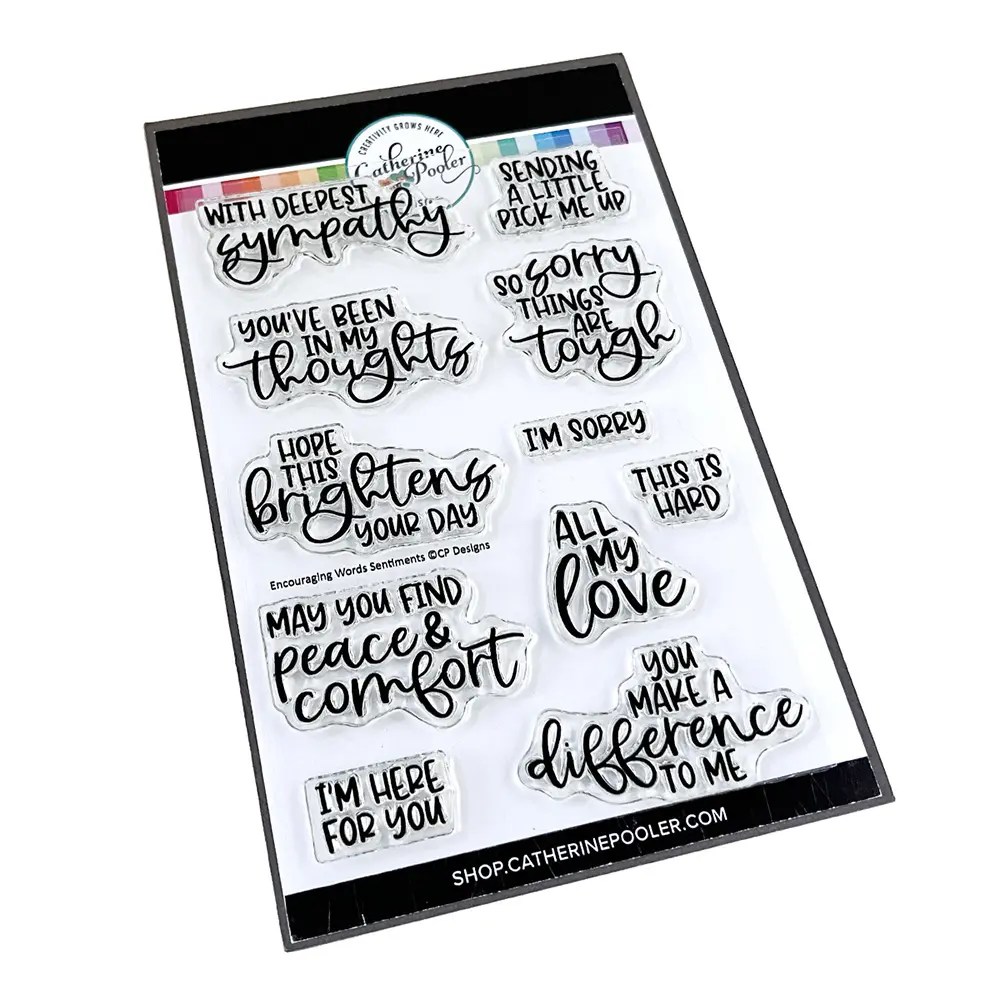 CREATIVITY GROWS HERE
Catherine
Pooler
WITH DEEPEST
sympathy
SENDING
A LITTLE
PICK ME UP
YOU'VE BEEN
IN MY
thoughts
SO sorry
THINGS
ARE
tough
HOPE
THIS
brightens
YOUR DAY
I'M SORRY
THIS IS
HARD
Encouraging Words Sentiments ©CP Designs
ALL
MY
love
MAY YOU FIND
peace &
comfort
YOU
MAKE A
difference
TO ME
I'M HERE
FOR YOU
SHOP.CATHERINEPOOLER.COM